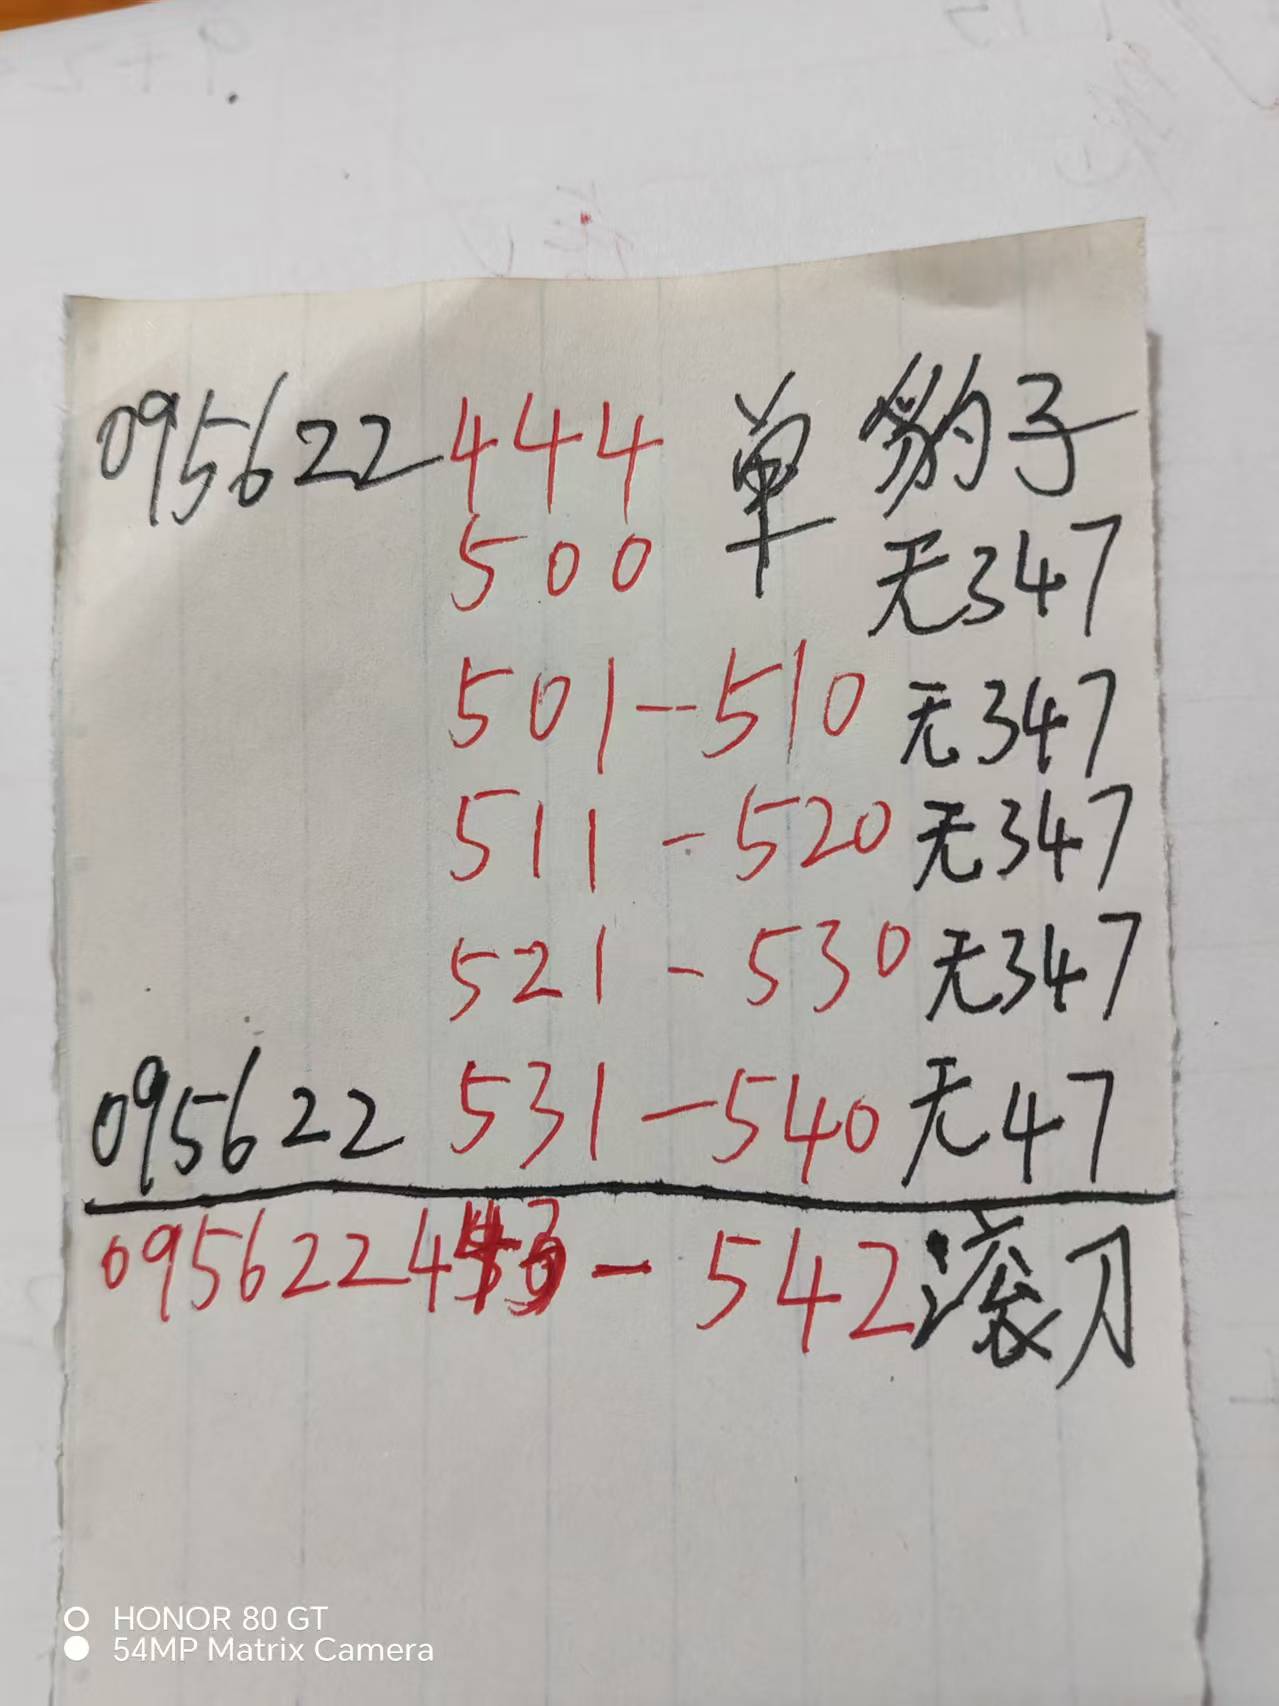 095622444 单 豹子
500 无347
501--510 无347
511-520 无347
521-530 无347
095622 531-540 无47
0956224 - 542 滚刀
HONOR 80 GT
54MP Matrix Camera